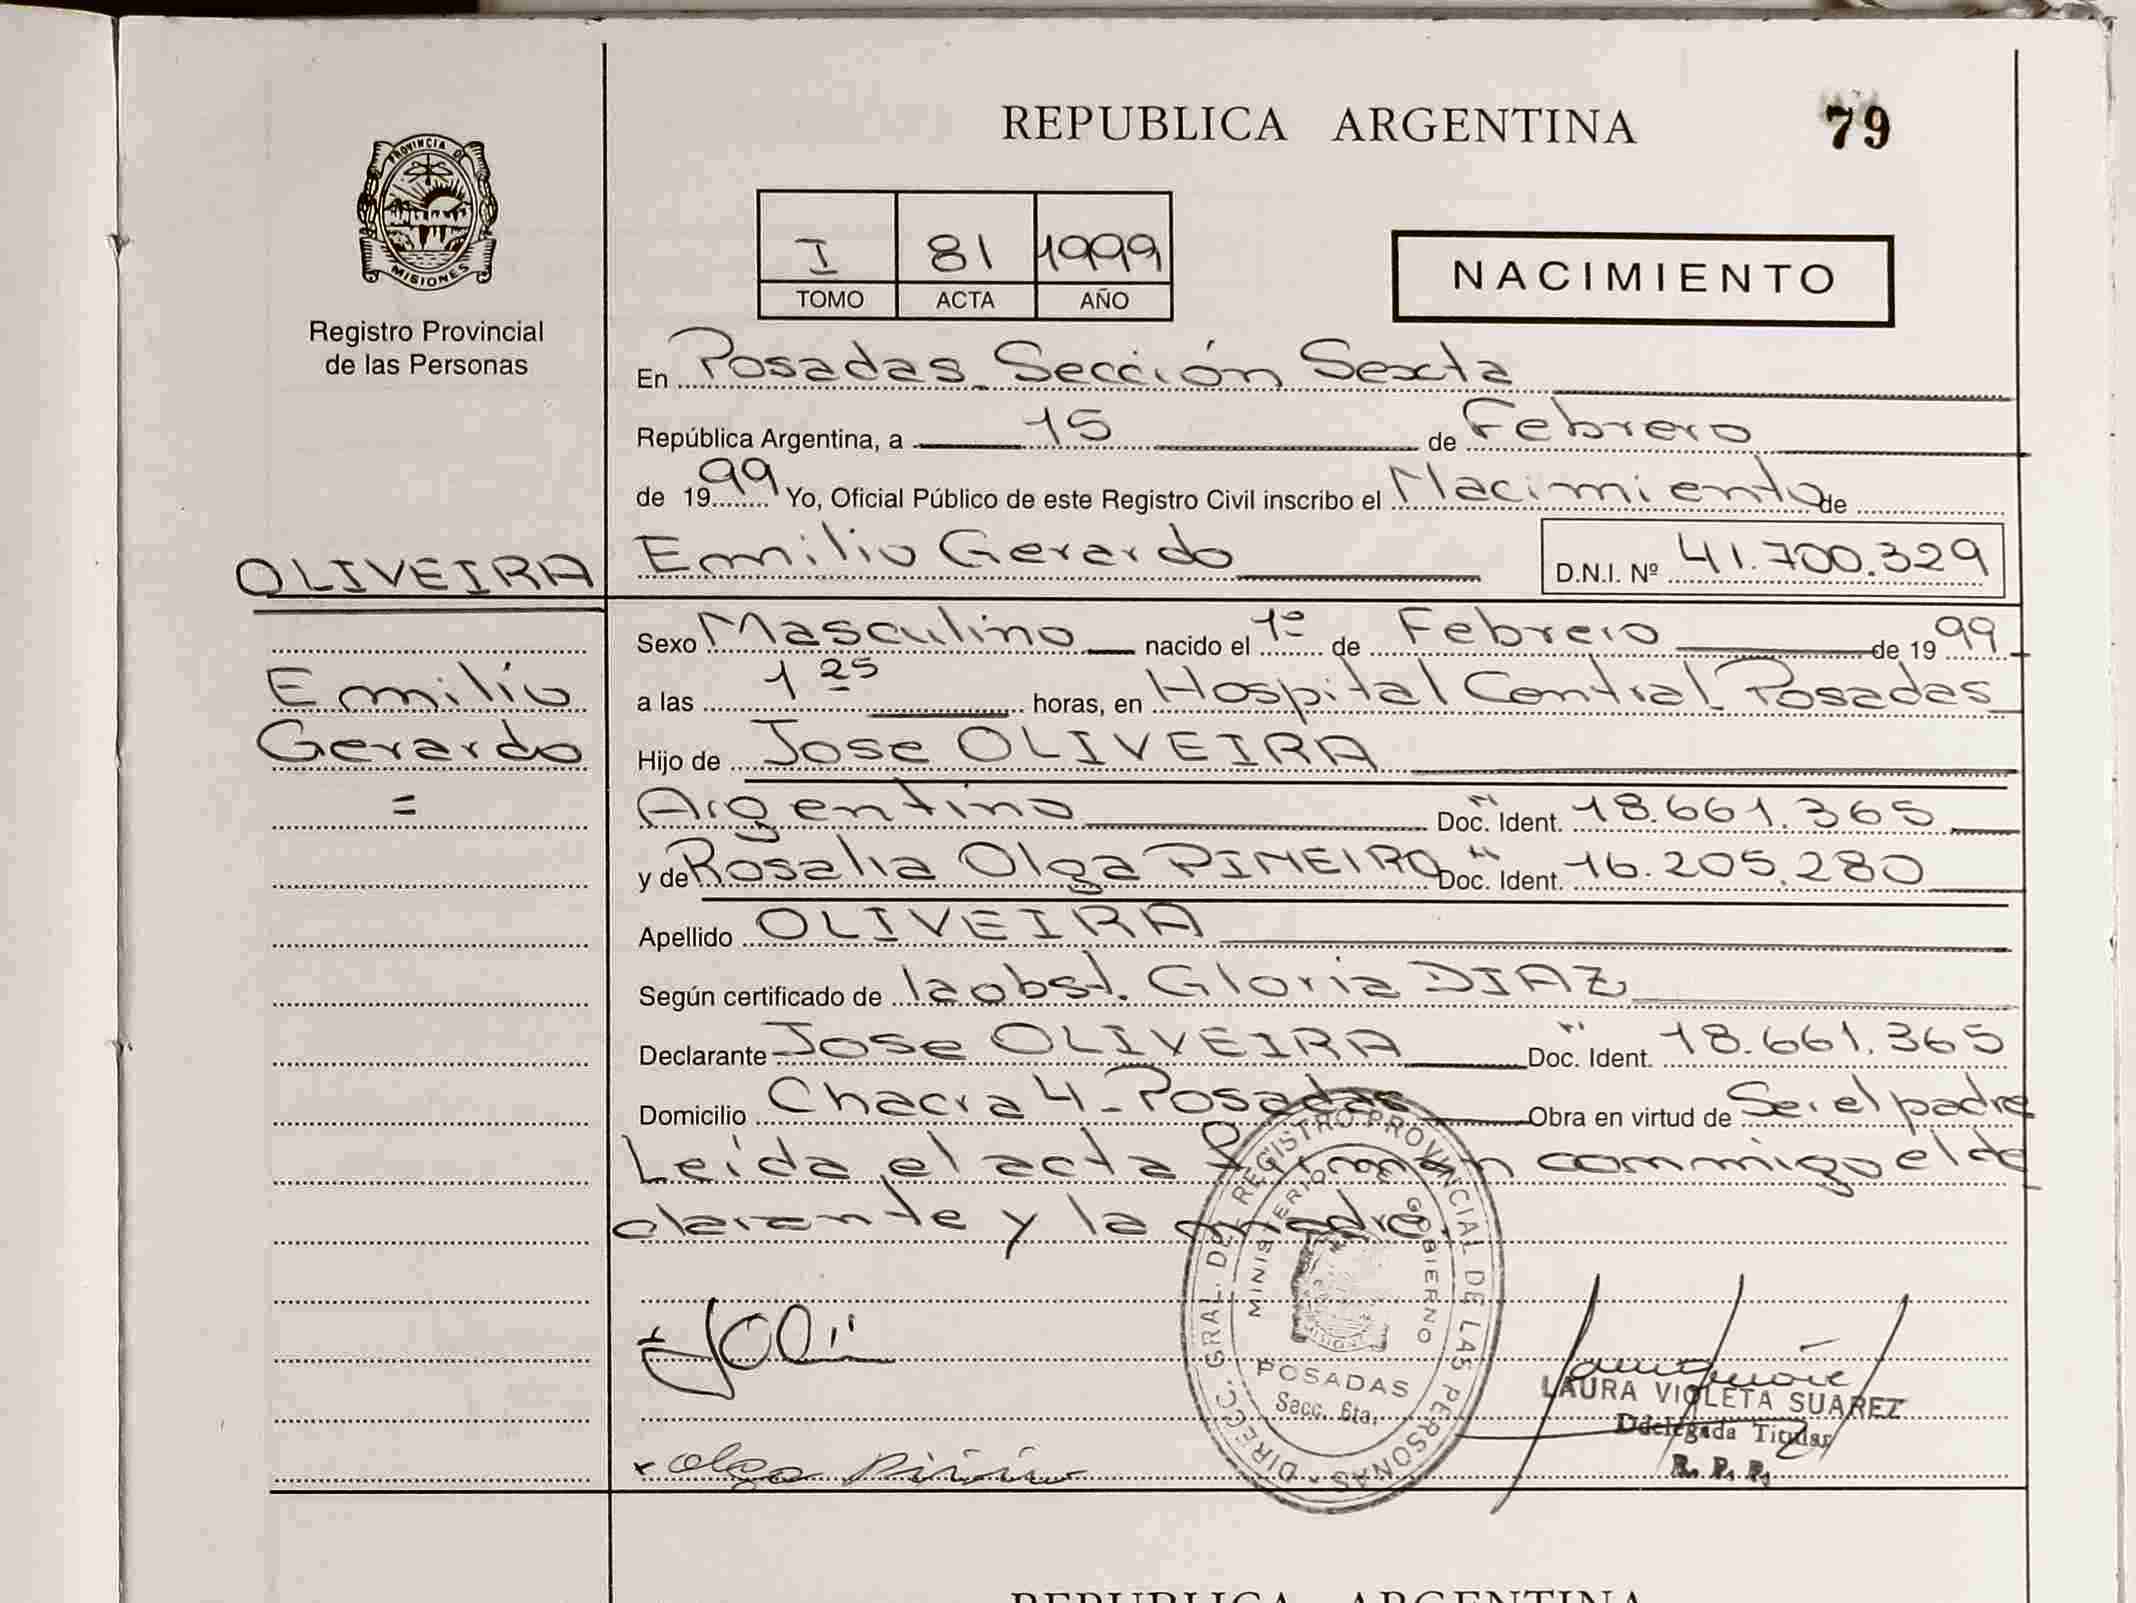 REPUBLICA ARGENTINA
79
PROVINCIA DE
MISIONES
Registro Provincial
de las Personas
I 81 1999
TOMO ACTA AÑO
NACIMIENTO
En Posadas. Sección Sexta
República Argentina, a 15 de Febrero
de 1999 Yo, Oficial Público de este Registro Civil inscribo el Nacimiento de
OLIVEIRA Emilio Gerardo D.N.I. Nº 41.700.329
Sexo Masculino nacido el 1º de Febrero de 1999
Emilio
a las 1 25 horas, en Hospital Central Posadas
Gerardo
Hijo de Jose OLIVEIRA
=
Argentino Doc. Ident. 18.661.365
y de Rosalia Olga PINEIRO Doc. Ident. 16.205.280
Apellido OLIVEIRA
Según certificado de la obst. Gloria DIAZ
Declarante Jose OLIVEIRA Doc. Ident. 18.661.365
Domicilio Chacra 4 - Posadas Obra en virtud de Ser el padre
Leída el acta firman conmigo el de
clarante y la madre.
DIRECC. GRAL. DEL REGISTRO PROVINCIAL DE LAS PERSONAS
MINISTERIO DE GOBIERNO
MISIONES
POSADAS
Secc. 6ta.
LAURA VIOLETA SUAREZ
Ddelegada Titular
R. P. P.
REPUBLICA ARGENTINA